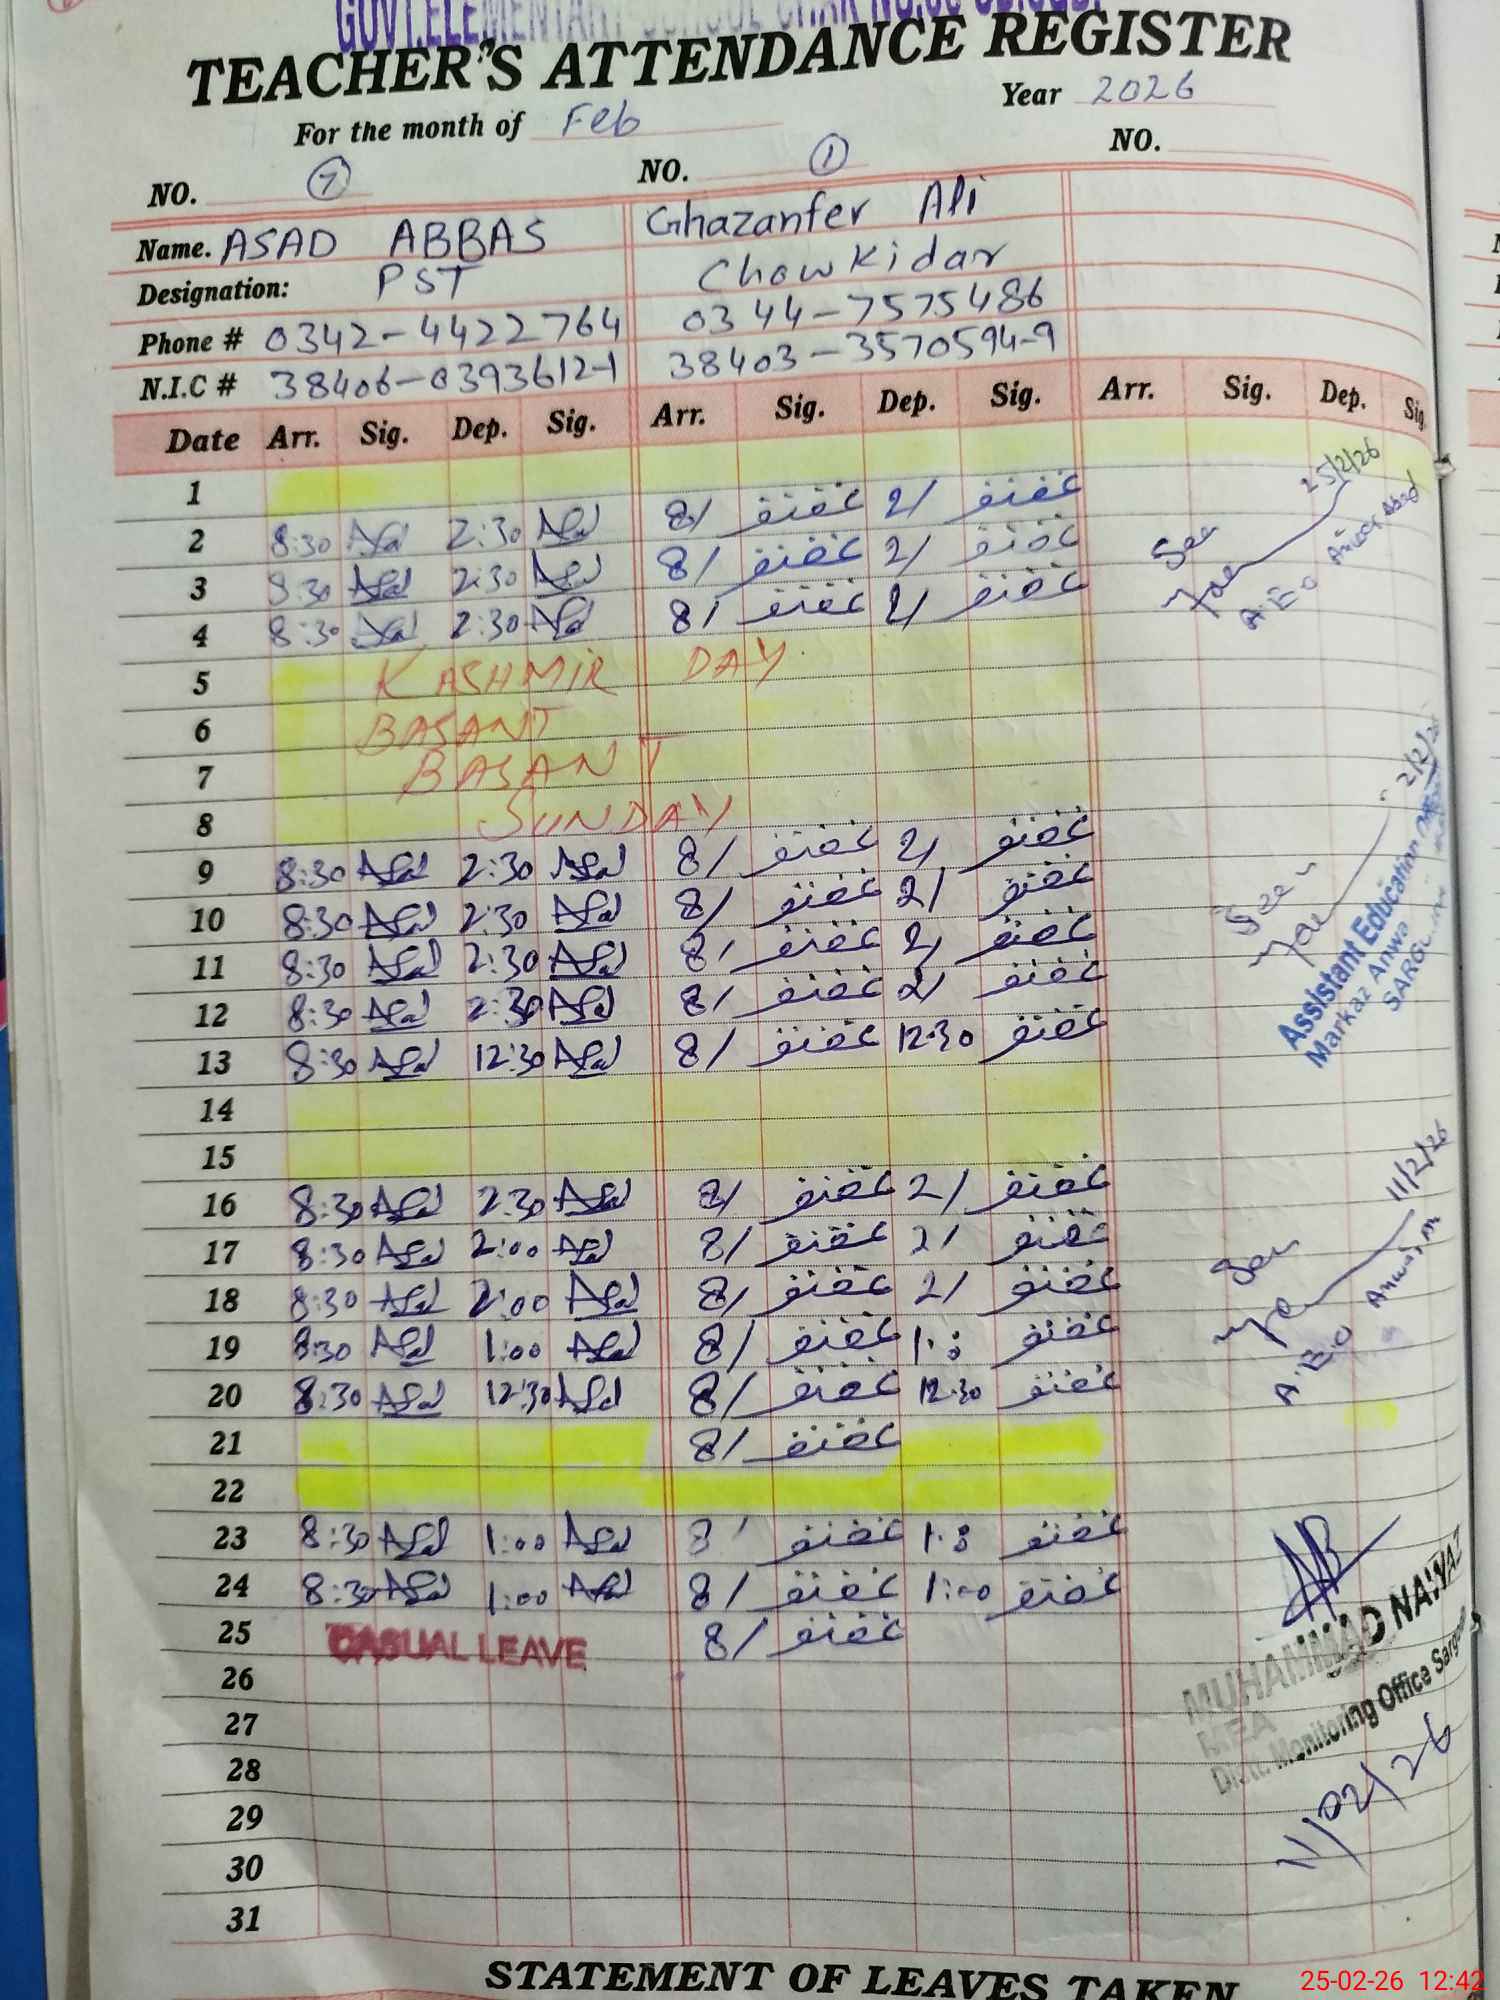 GOVT.ELEMENTARY SCHOOL CHAK NO.
TEACHER'S ATTENDANCE REGISTER
For the month of Feb Year 2026
NO. 7 NO. 1 NO.
Name. ASAD ABBAS Ghazanfer Ali
Designation: PST Chowkidar
Phone # 0342-4422764 0344-7575486
N.I.C # 38406-0393612-1 38403-3570594-9
Date Arr. Sig. Dep. Sig. Arr. Sig. Dep. Sig. Arr. Sig. Dep. Sig.
1
2 8:30 Asad 2:30 Asad 8/ غضنفر 2/ غضنفر
3 8:30 Asad 2:30 Asad 8/ غضنفر 2/ غضنفر
4 8:30 Asad 2:30 Asad 8/ غضنفر 2/ غضنفر
5 KASHMIR DAY
6 BASANT
7 BASANT
8 SUNDAY
9 8:30 Asad 2:30 Asad 8/ غضنفر 2/ غضنفر
10 8:30 Asad 2:30 Asad 8/ غضنفر 2/ غضنفر
11 8:30 Asad 2:30 Asad 8/ غضنفر 2/ غضنفر
12 8:30 Asad 2:30 Asad 8/ غضنفر 2/ غضنفر
13 8:30 Asad 12:30 Asad 8/ غضنفر 12:30 غضنفر
14
15
16 8:30 Asad 2:30 Asad 8/ غضنفر 2/ غضنفر
17 8:30 Asad 2:00 Asad 8/ غضنفر 2/ غضنفر
18 8:30 Asad 2:00 Asad 8/ غضنفر 2/ غضنفر
19 8:30 Asad 1:00 Asad 8/ غضنفر 1:00 غضنفر
20 8:30 Asad 12:30 Asad 8/ غضنفر 12:30 غضنفر
21 8/ غضنفر
22
23 8:30 Asad 1:00 Asad 8/ غضنفر 1:00 غضنفر
24 8:30 Asad 1:00 Asad 8/ غضنفر 1:00 غضنفر
25 CASUAL LEAVE 8/ غضنفر
26
27
28
29
30
31
25/2/26
A.E.O
2/2/26
Assistant Education
Markaz
11/2/26
A.E.O
MUHAMMAD NAWAZ
MEA
Distt. Monitoring Office
11/02/26
STATEMENT OF LEAVES TAKEN
25-02-26 12:42